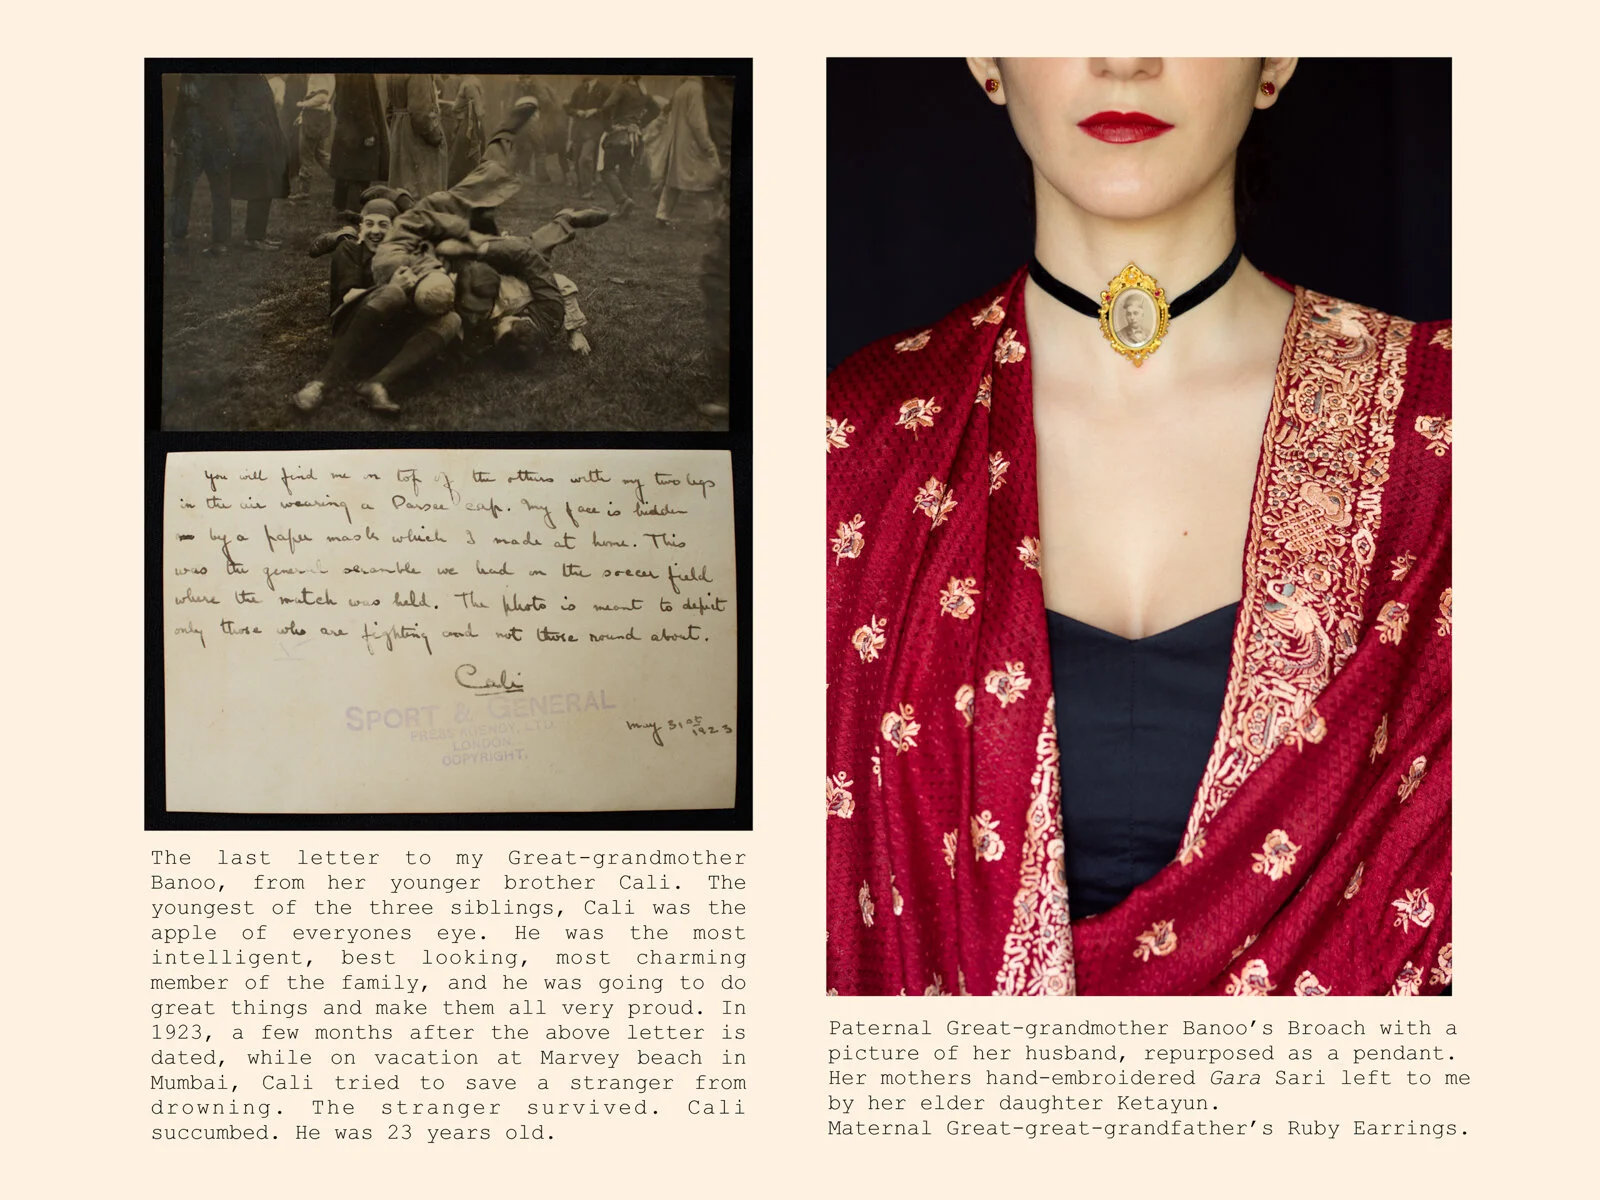 You will find me on top of the others with my two legs
in the air wearing a Parsee cap. My face is hidden
by a paper mask which I made at home. This
was the general scramble we had on the soccer field
where the match was held. The photo is meant to depict
only those who are fighting and not those round about.
Cali
SPORT & GENERAL
PRESS AGENCY, LTD.
LONDON
COPYRIGHT.
May 31st
1923
The last letter to my Great-grandmother
Banoo, from her younger brother Cali. The
youngest of the three siblings, Cali was the
apple of everyones eye. He was the most
intelligent, best looking, most charming
member of the family, and he was going to do
great things and make them all very proud. In
1923, a few months after the above letter is
dated, while on vacation at Marvey beach in
Mumbai, Cali tried to save a stranger from
drowning. The stranger survived. Cali
succumbed. He was 23 years old.
Paternal Great-grandmother Banoo’s Broach with a
picture of her husband, repurposed as a pendant.
Her mothers hand-embroidered Gara Sari left to me
by her elder daughter Ketayun.
Maternal Great-great-grandfather’s Ruby Earrings.